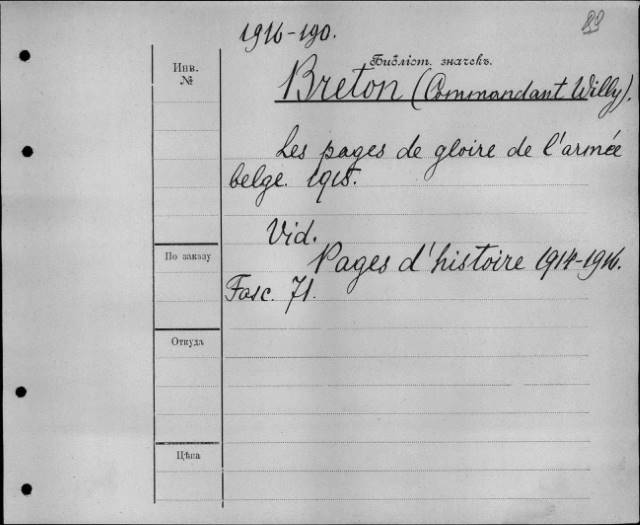 1916-190.
89
Инв.
№
Библіот. значекъ.
Breton (Commandant Willy).
Les pages de gloire de l'armée
belge. 1915.
Vid.
По заказу
Pages d'histoire 1914-1916.
Fasc. 71.
Откуда
Цѣна